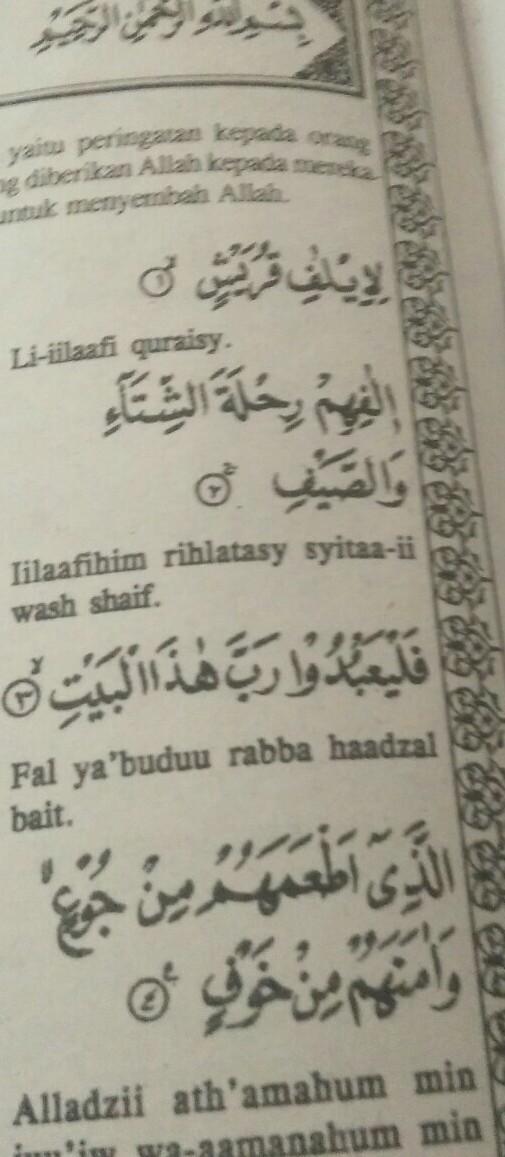 بِسْمِ اللّٰهِ الرَّحْمٰنِ الرَّحِيْمِ
yaitu peringatan kepada orang
ng diberikan Allah kepada mereka
untuk menyembah Allah.
لِاِيْلٰفِ قُرَيْشٍۙ ١
Li-iilaafi quraisy.
اٖلٰفِهِمْ رِحْلَةَ الشِّتَآءِ
وَالصَّيْفِۚ ٢
Iilaafihim rihlatasy syitaa-ii
wash shaif.
فَلْيَعْبُدُوْا رَبَّ هٰذَا الْبَيْتِۙ ٣
Fal ya'buduu rabba haadzal
bait.
الَّذِيْٓ اَطْعَمَهُمْ مِنْ جُوْعٍۙ
وَاٰمَنَهُمْ مِنْ خَوْفٍۚ ٤
Alladzii ath'amahum min
juu'iw wa-aamanahum min